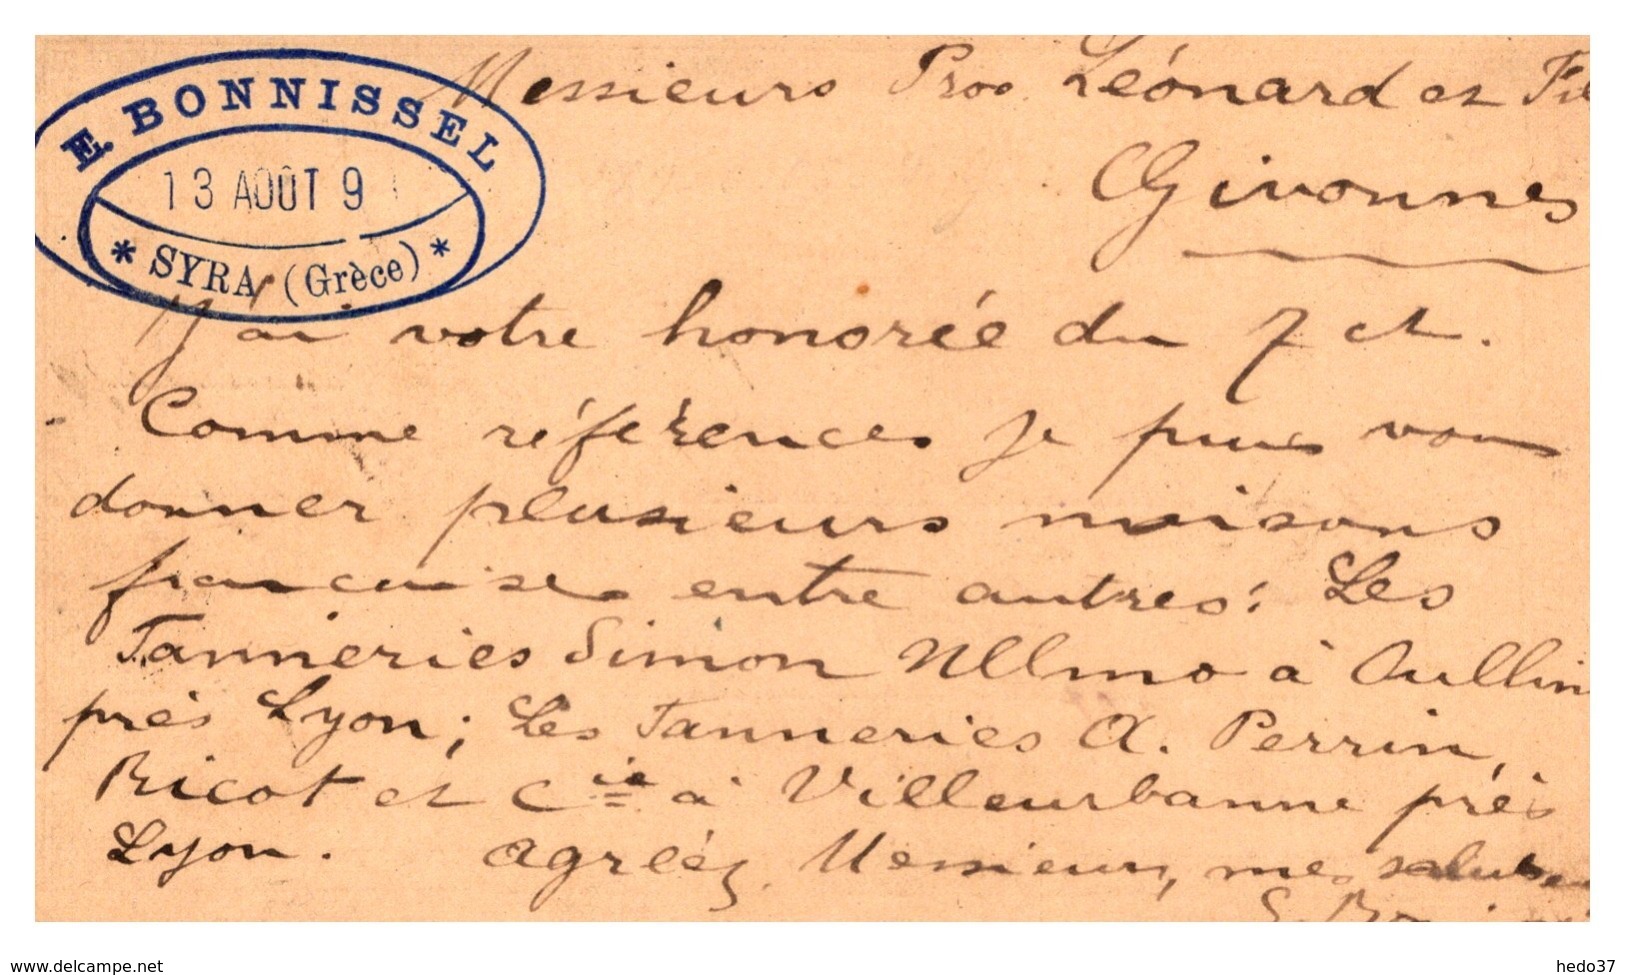 E. BONNISSEL
13 AOÛT 9
* SYRA (Grèce) *
Messieurs Pros Léonard et Fil
Givonnes
J'ai votre honorée du 7 ct.
Comme références je puis vous
donner plusieurs maisons
françaises entre autres: Les
Tanneries Simon Ullmo à Oullin
près Lyon; Les Tanneries A. Perrin,
Ricot et Cie à Villeurbanne près
Lyon. Agréez, Messieurs, mes salut
www.delcampe.net
hedo37